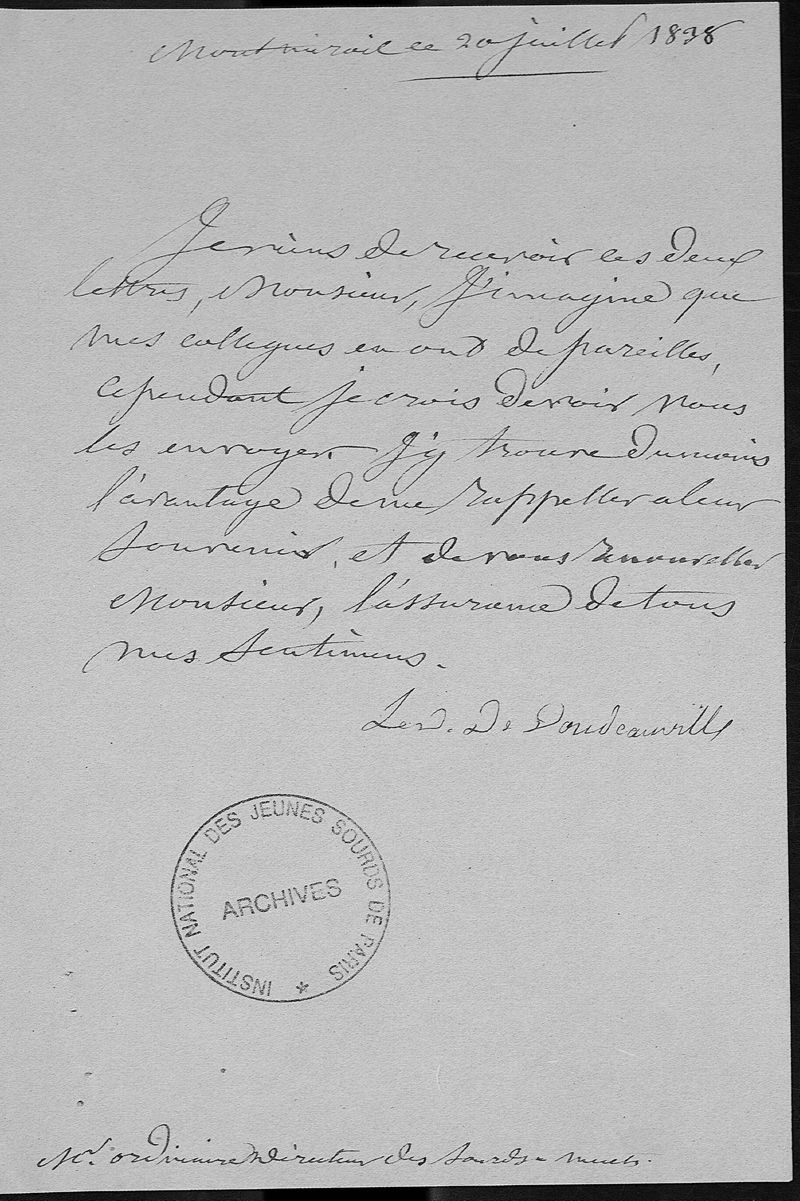 Montmirail ce 20 juillet 1838
Je viens de recevoir ces deux
lettres, Monsieur, J'imagine que
mes collegues en ont de pareilles,
cependant je crois devoir vous
les envoyer. J'y trouve du moins
l'avantage de me rappeller a leur
souvenir, et de vous renouveller
Monsieur, l'assurance de tous
mes sentimens.
Le d. De Doudeauville
INSTITUT NATIONAL DES JEUNES SOURDS DE PARIS *
ARCHIVES
Mr. ordinaire Directeur des sourds-muets.